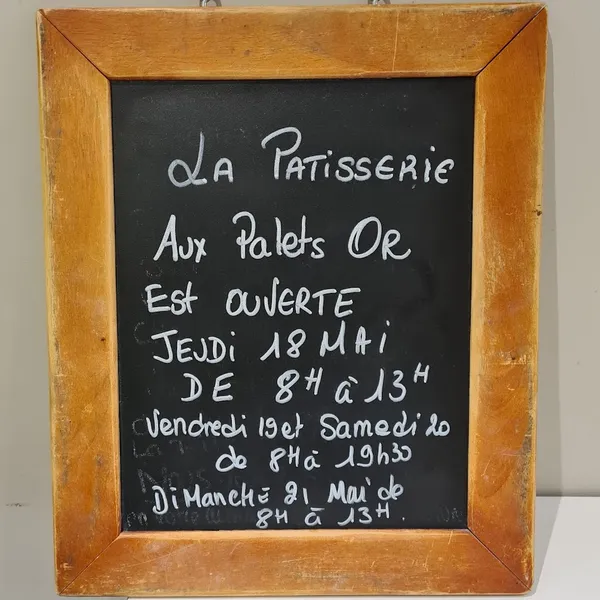 La PATISSERIE
Aux Palets OR
Est OUVERTE
JEUDi 18 MAi
DE 8H à 13H
Vendredi 19 et Samedi 20
de 8H à 19h30
DiMANCHE 21 Mai de
8H à 13H.